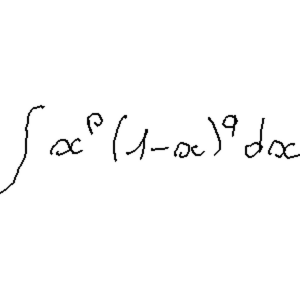 ∫ x^p (1-x)^q dx